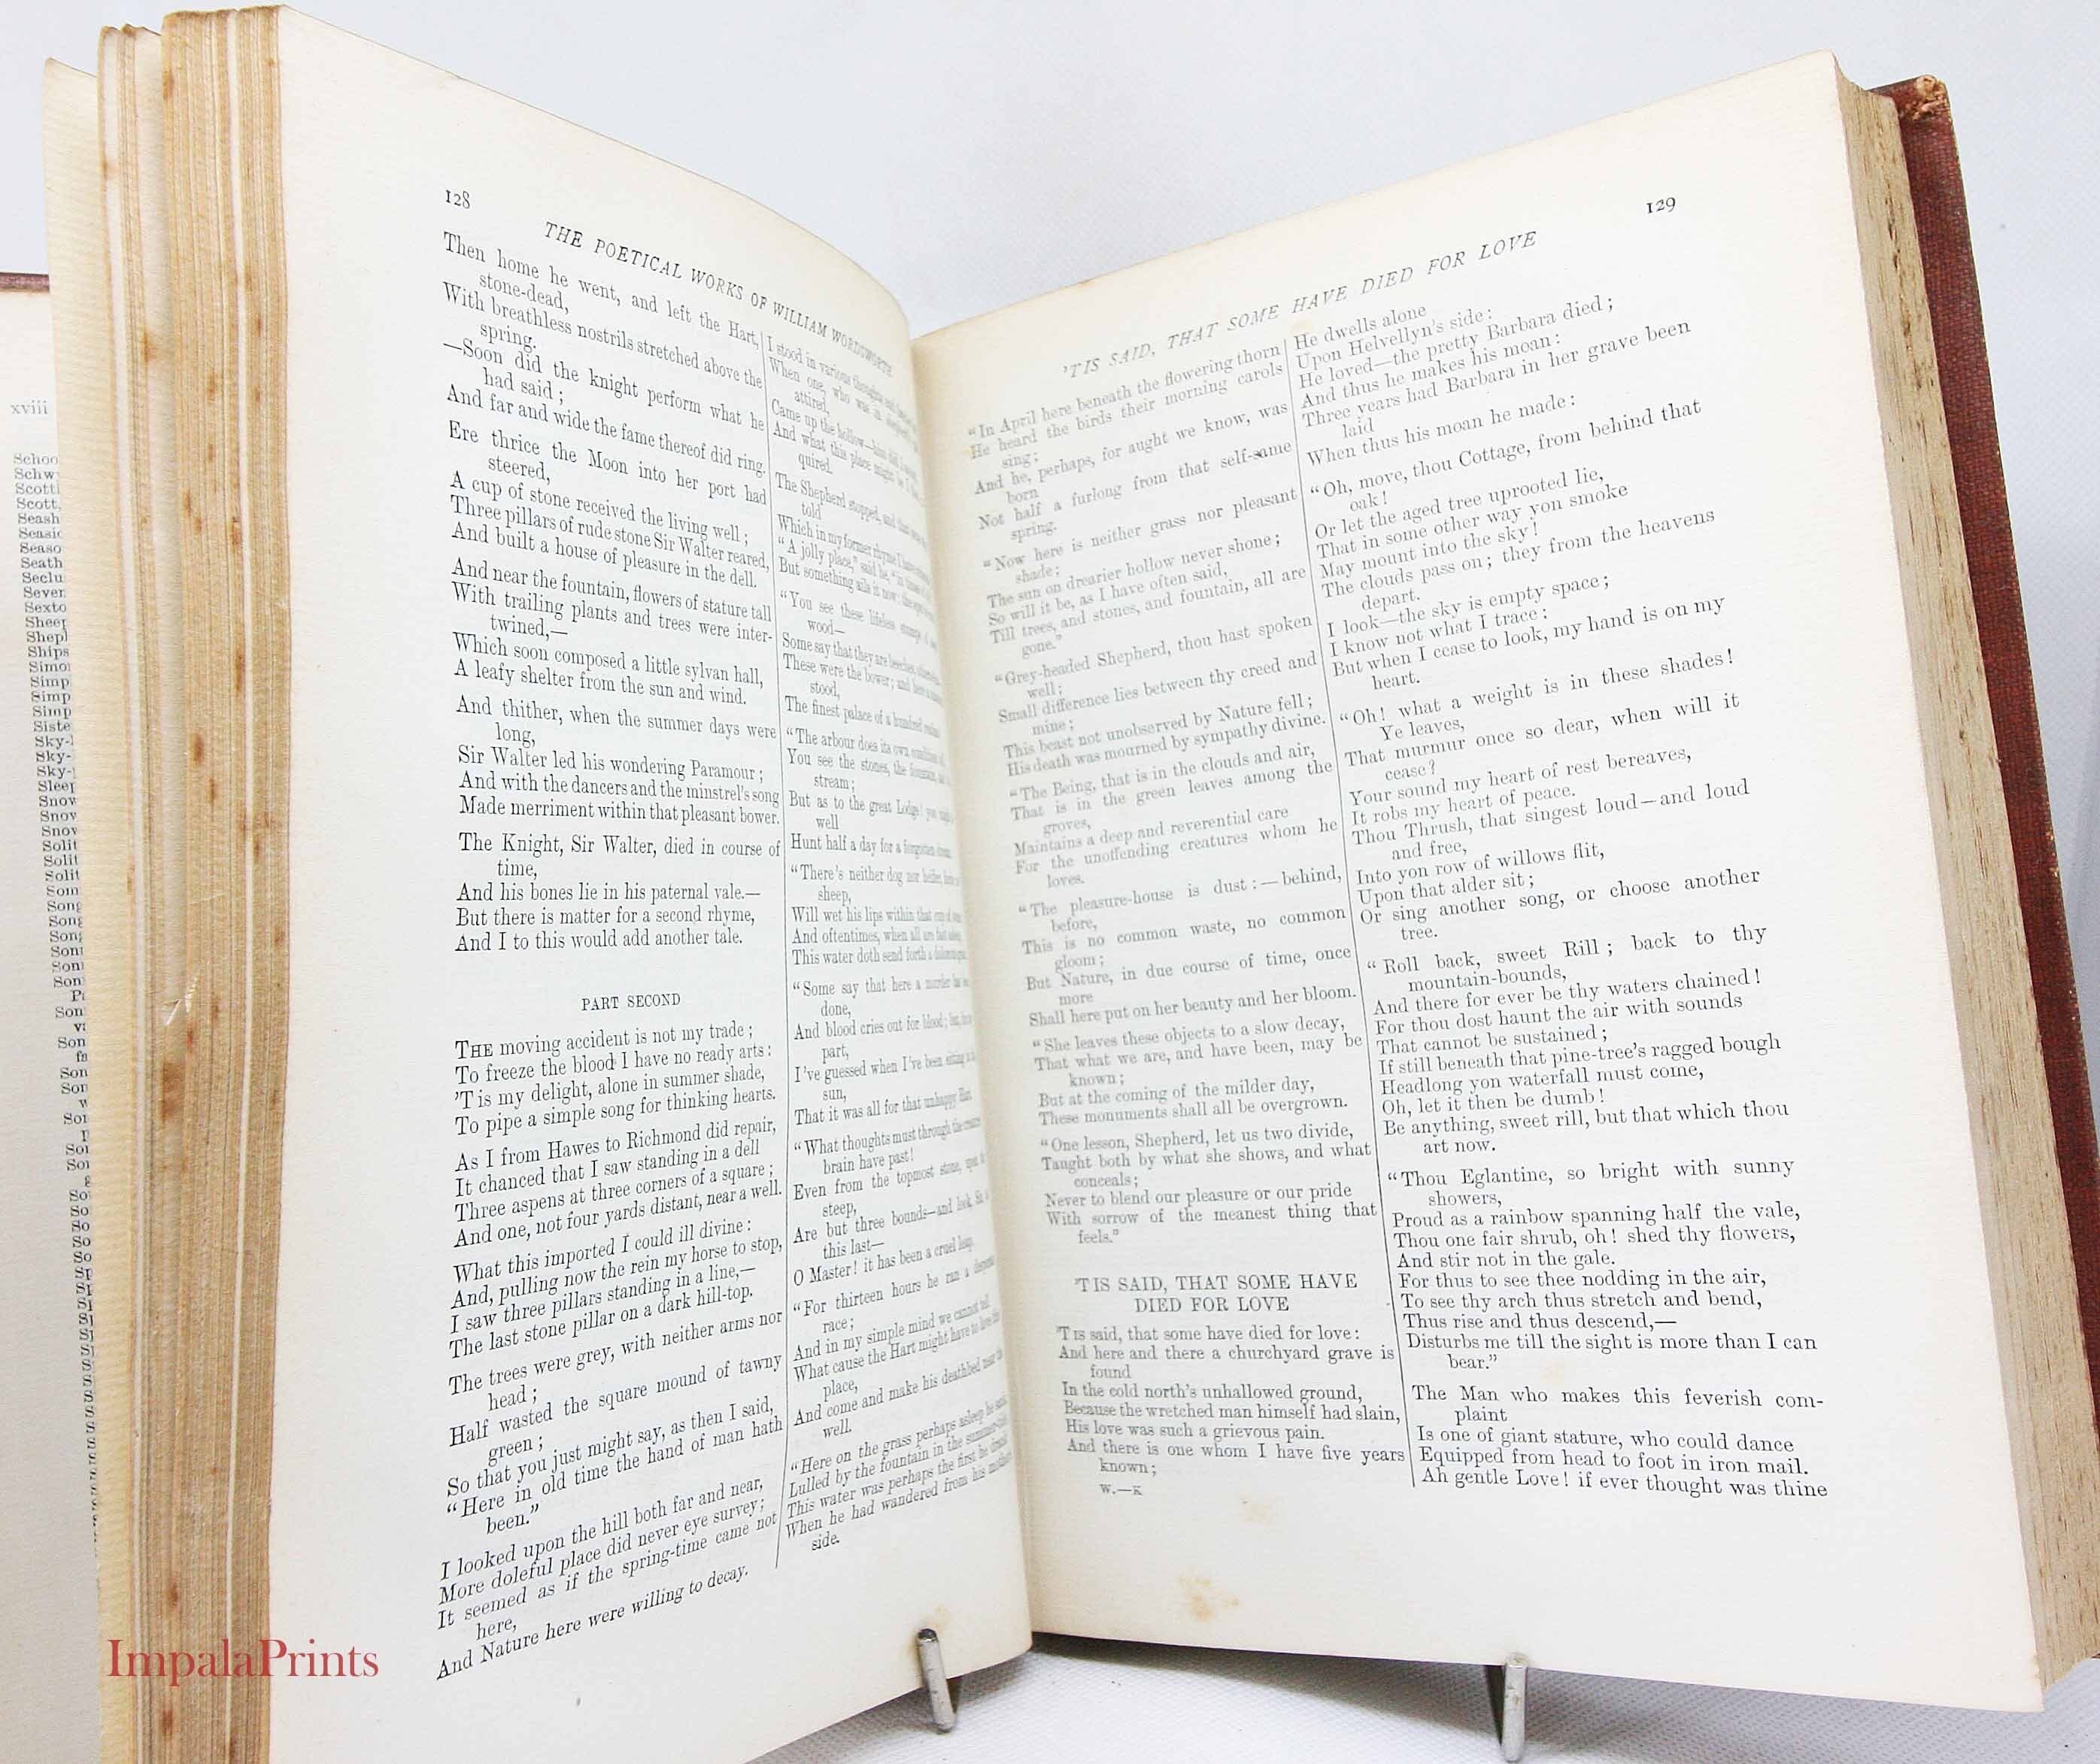 xviii
Schoo
Schw
Scotti
Scott,
Seash
Seasic
Seaso
Seath
Seclu
Seven
Sexto
Sheep
Shepl
Ships
Simo
Simp
Simp
Simp
Siste
Sky-l
Sky-
Sky-
Sleep
Snov
Snov
Snov
Solit
Solit
Solit
Som
Song
Song
128
THE POETICAL WORKS OF WILLIAM WORDSWORTH
Then home he went, and left the Hart,
stone-dead,
With breathless nostrils stretched above the
spring.
—Soon did the knight perform what he
had said;
And far and wide the fame thereof did ring.
Ere thrice the Moon into her port had
steered,
A cup of stone received the living well;
Three pillars of rude stone Sir Walter reared,
And built a house of pleasure in the dell.
And near the fountain, flowers of stature tall
With trailing plants and trees were inter-
twined,—
Which soon composed a little sylvan hall,
A leafy shelter from the sun and wind.
And thither, when the summer days were
long,
Sir Walter led his wondering Paramour;
And with the dancers and the minstrel's song
Made merriment within that pleasant bower.
The Knight, Sir Walter, died in course of
time,
And his bones lie in his paternal vale.—
But there is matter for a second rhyme,
And I to this would add another tale.
PART SECOND
THE moving accident is not my trade;
To freeze the blood I have no ready arts:
'Tis my delight, alone in summer shade,
To pipe a simple song for thinking hearts.
As I from Hawes to Richmond did repair,
It chanced that I saw standing in a dell
Three aspens at three corners of a square;
And one, not four yards distant, near a well.
What this imported I could ill divine:
And, pulling now the rein my horse to stop,
I saw three pillars standing in a line,—
The last stone pillar on a dark hill-top.
The trees were grey, with neither arms nor
head;
Half wasted the square mound of tawny
green;
So that you just might say, as then I said,
"Here in old time the hand of man hath
been."
I looked upon the hill both far and near,
More doleful place did never eye survey;
It seemed as if the spring-time came not
here,
And Nature here were willing to decay.
I stood in various thoughts
When one, who was in
attired,
Came up the hollow—him did I
And what this place might be I
quired.
The Shepherd stopped, and that
told
Which in my former rhyme I have
"A jolly place," said he, "in times of
But something ails it now: the spot
"You see these lifeless stumps of
wood—
Some say that they are beeches, others
These were the bower; and here a
stood,
The finest palace of a hundred
"The arbour does its own condition
You see the stones, the fountain, and
stream;
But as to the great Lodge! you might
well
Hunt half a day for a forgotten dream.
"There's neither dog nor heifer,
sheep,
Will wet his lips within that cup of
And oftentimes, when all are fast asleep,
This water doth send forth a
"Some say that here a murder has
done,
And blood cries out for blood; but, for
part,
I've guessed when I've been sitting in
sun,
That it was all for that unhappy Hart.
"What thoughts must through the
brain have past!
Even from the topmost stone, upon
steep,
Are but three bounds—and look, Sir,
this last—
O Master! it has been a cruel leap.
"For thirteen hours he ran a desperate
race;
And in my simple mind we cannot tell
What cause the Hart might have to love
place,
And come and make his deathbed near the
well.
"Here on the grass perhaps asleep he sank,
Lulled by the fountain in the summer-tide;
This water was perhaps the first he drank
When he had wandered from his mother's
side.
129
'TIS SAID, THAT SOME HAVE DIED FOR LOVE
"In April here beneath the flowering thorn
He heard the birds their morning carols
sing;
And he, perhaps, for aught we know, was
born
Not half a furlong from that self-same
spring.
"Now here is neither grass nor pleasant
shade;
The sun on drearier hollow never shone;
So will it be, as I have often said,
Till trees, and stones, and fountain, all are
gone."
"Grey-headed Shepherd, thou hast spoken
well;
Small difference lies between thy creed and
mine;
This beast not unobserved by Nature fell;
His death was mourned by sympathy divine.
"The Being, that is in the clouds and air,
That is in the green leaves among the
groves,
Maintains a deep and reverential care
For the unoffending creatures whom he
loves.
"The pleasure-house is dust:—behind,
before,
This is no common waste, no common
gloom;
But Nature, in due course of time, once
more
Shall here put on her beauty and her bloom.
"She leaves these objects to a slow decay,
That what we are, and have been, may be
known;
But at the coming of the milder day,
These monuments shall all be overgrown.
"One lesson, Shepherd, let us two divide,
Taught both by what she shows, and what
conceals;
Never to blend our pleasure or our pride
With sorrow of the meanest thing that
feels."
'TIS SAID, THAT SOME HAVE
DIED FOR LOVE
'TIS said, that some have died for love:
And here and there a churchyard grave is
found
In the cold north's unhallowed ground,
Because the wretched man himself had slain,
His love was such a grievous pain.
And there is one whom I have five years
known;
W.—K
He dwells alone
Upon Helvellyn's side:
He loved—the pretty Barbara died;
And thus he makes his moan:
Three years had Barbara in her grave been
laid
When thus his moan he made:
"Oh, move, thou Cottage, from behind that
oak!
Or let the aged tree uprooted lie,
That in some other way yon smoke
May mount into the sky!
The clouds pass on; they from the heavens
depart.
I look—the sky is empty space;
I know not what I trace:
But when I cease to look, my hand is on my
heart.
"Oh! what a weight is in these shades!
Ye leaves,
That murmur once so dear, when will it
cease?
Your sound my heart of rest bereaves,
It robs my heart of peace.
Thou Thrush, that singest loud—and loud
and free,
Into yon row of willows flit,
Upon that alder sit;
Or sing another song, or choose another
tree.
"Roll back, sweet Rill; back to thy
mountain-bounds,
And there for ever be thy waters chained!
For thou dost haunt the air with sounds
That cannot be sustained;
If still beneath that pine-tree's ragged bough
Headlong yon waterfall must come,
Oh, let it then be dumb!
Be anything, sweet rill, but that which thou
art now.
"Thou Eglantine, so bright with sunny
showers,
Proud as a rainbow spanning half the vale,
Thou one fair shrub, oh! shed thy flowers,
And stir not in the gale.
For thus to see thee nodding in the air,
To see thy arch thus stretch and bend,
Thus rise and thus descend,—
Disturbs me till the sight is more than I can
bear."
The Man who makes this feverish com-
plaint
Is one of giant stature, who could dance
Equipped from head to foot in iron mail.
Ah gentle Love! if ever thought was thine
ImpalaPrints